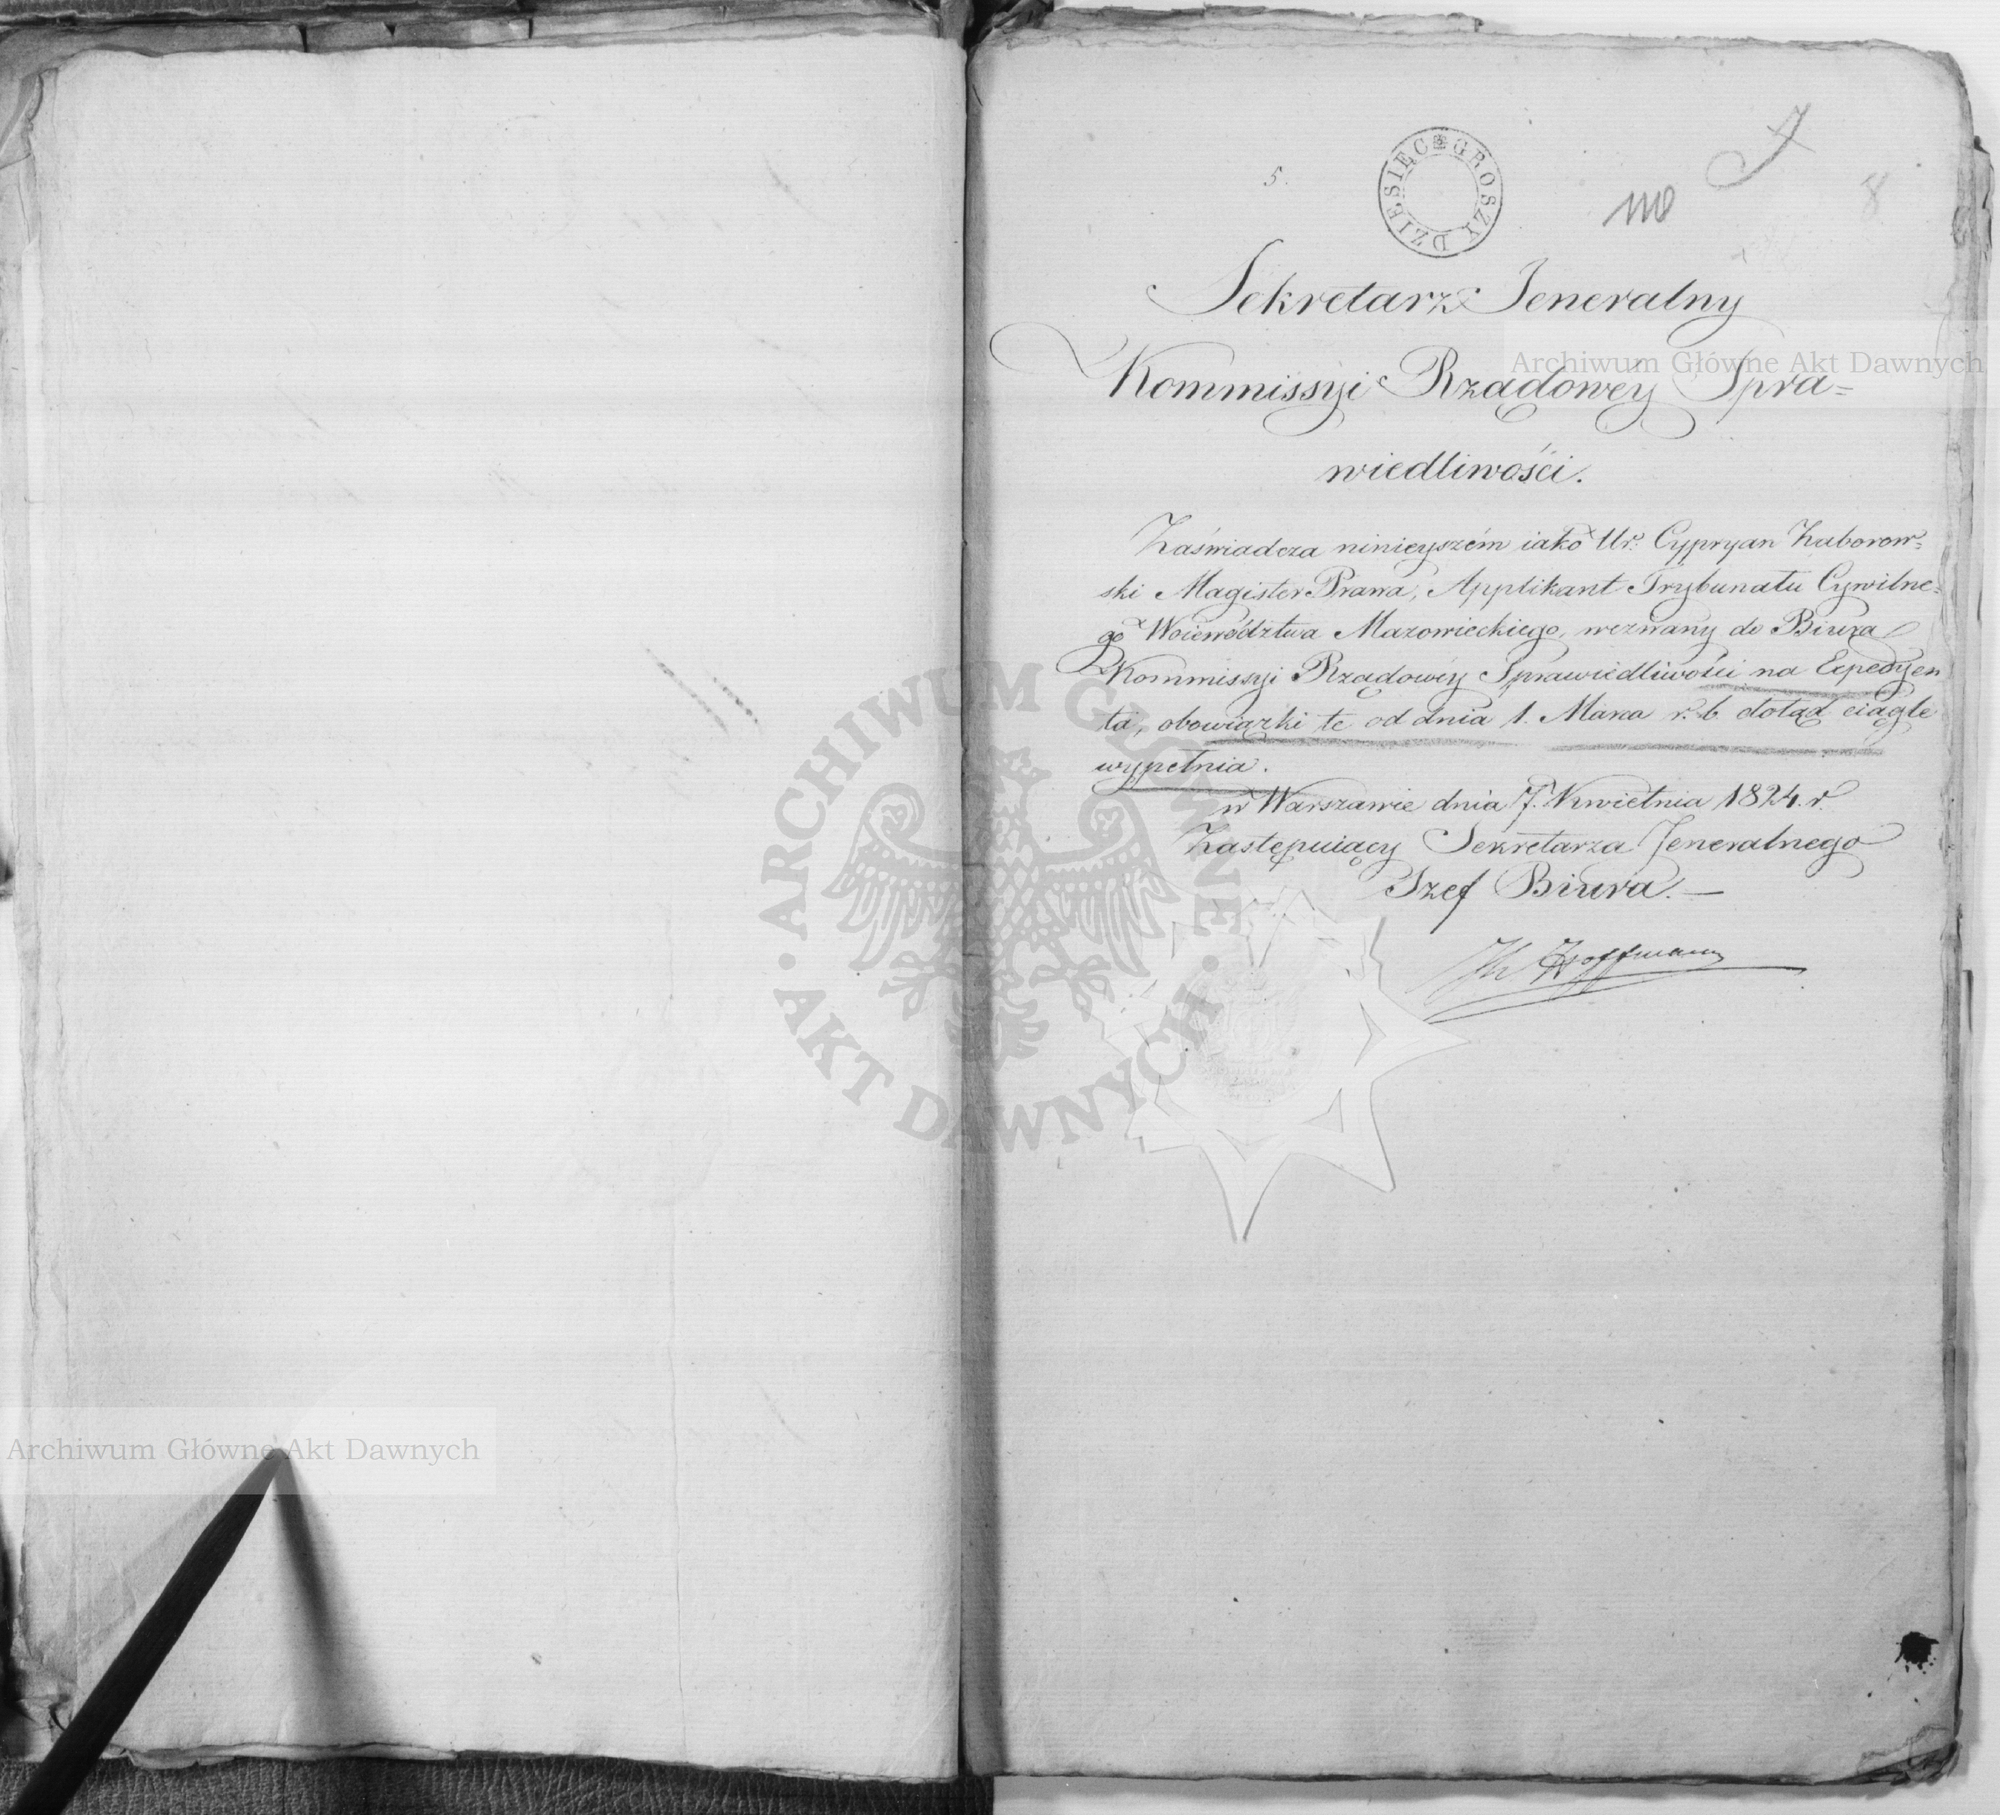 5.
DZIESIĘC GROSZY
8
Sekretarz Jeneralny
Kommissyi Rządowey Spra=
wiedliwości.
Zaświadcza ninieyszém iako Ur: Cypryan Zaborow=
ski Magister Prawa, Applikant Trybunału Cywilne=
go Woiewództwa Mazowieckiego, wezwany do Biura
Kommissyi Rządowéy Sprawiedliwości na Expedyen
ta, obowiązki te od dnia 1. Marca r. b. dotąd ciągle
wypełnia.
w Warszawie dnia 7. Kwietnia 1824. r.
Zastępuiący Sekretarza Jeneralnego
Szef Biura.—
Hoffmann
Archiwum Główne Akt Dawnych
· ARCHIWUM GŁÓWNE · AKT DAWNYCH
Archiwum Główne Akt Dawnych